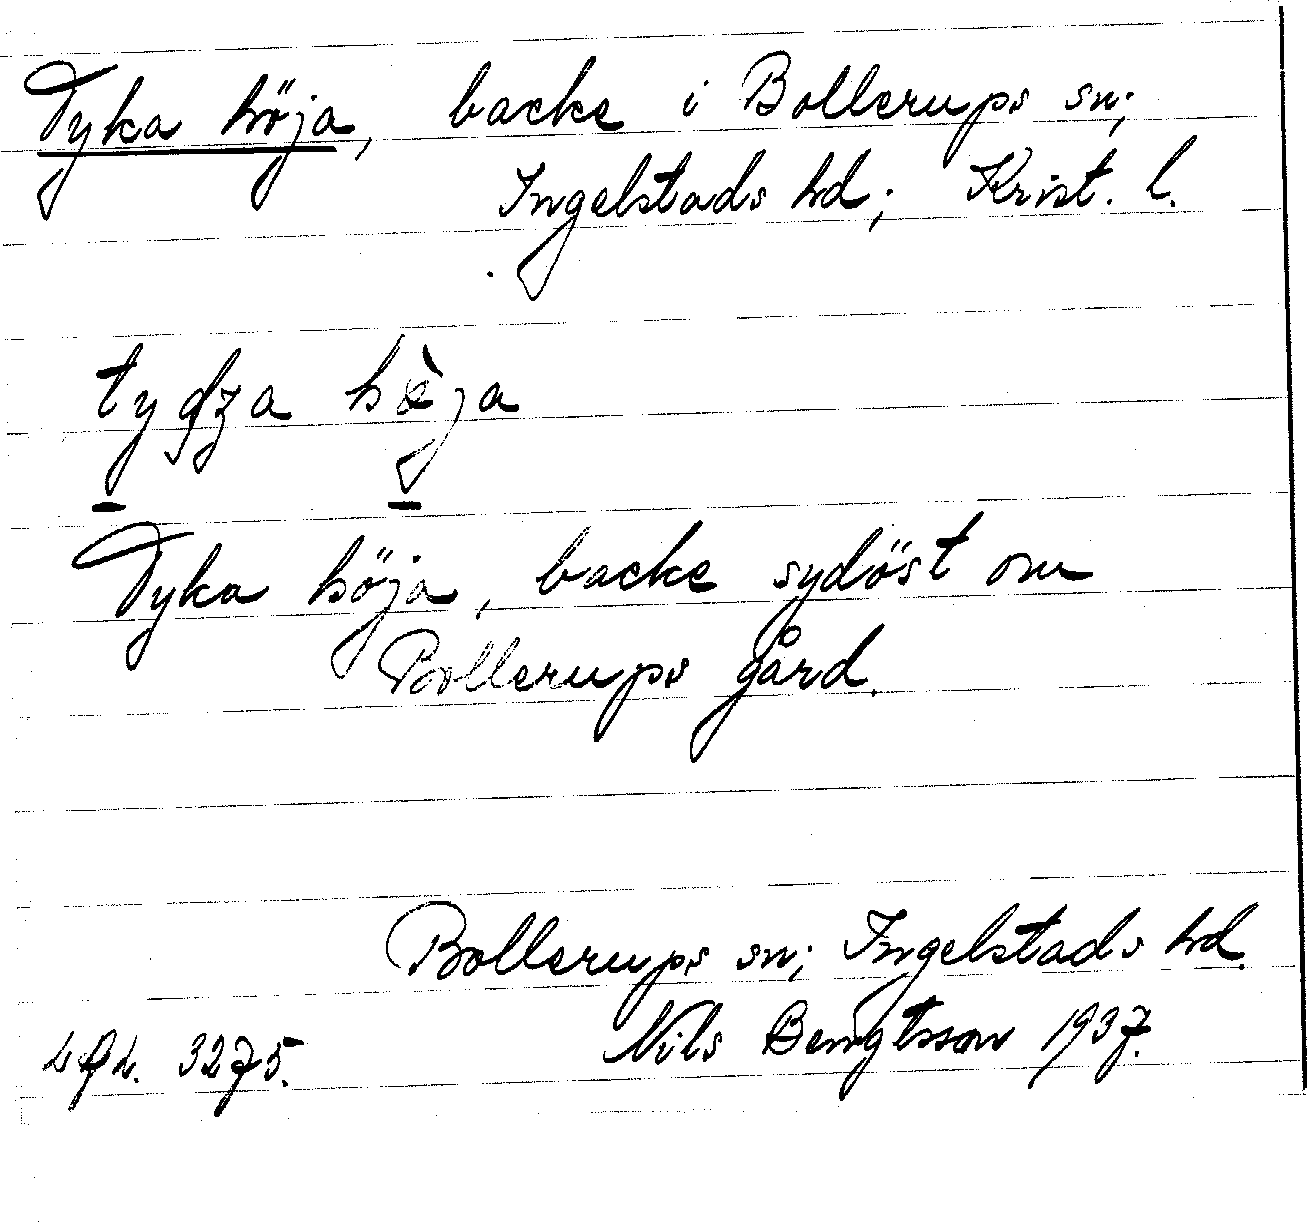 Tyka höja, backe i Bollerups sn;
Ingelstads hd; Krist. l.
Tyka höja, backe sydöst om
Bollerups gård.
Bollerups sn; Ingelstads hd.
3275. Nils Bengtsson 1937.